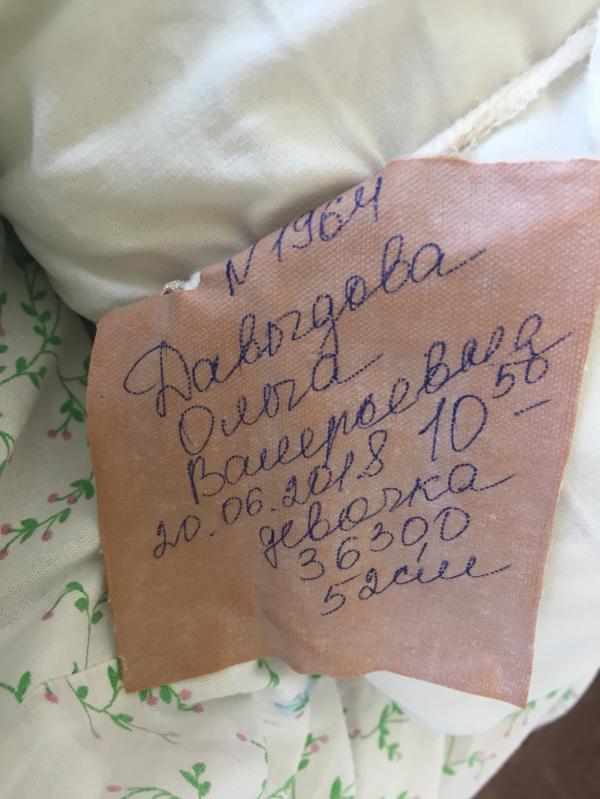 N 1964
Давыдова
Ольга
Валерьевна
20.06.2018 10 50
девочка
36300
52см